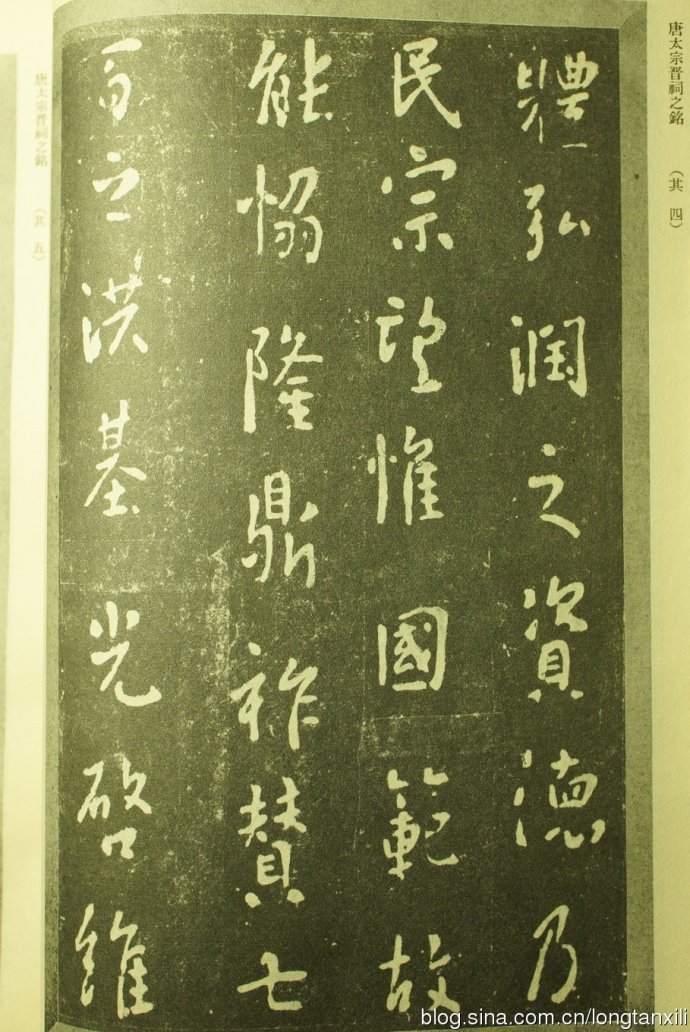 唐太宗晋祠之銘 (其 四)
體弘潤之資德乃
民宗望惟國範故
能恊隆鼎祚贊七
百之洪基光啓維
唐太宗晋祠之銘 (其 五)
blog.sina.com.cn/longtanxili